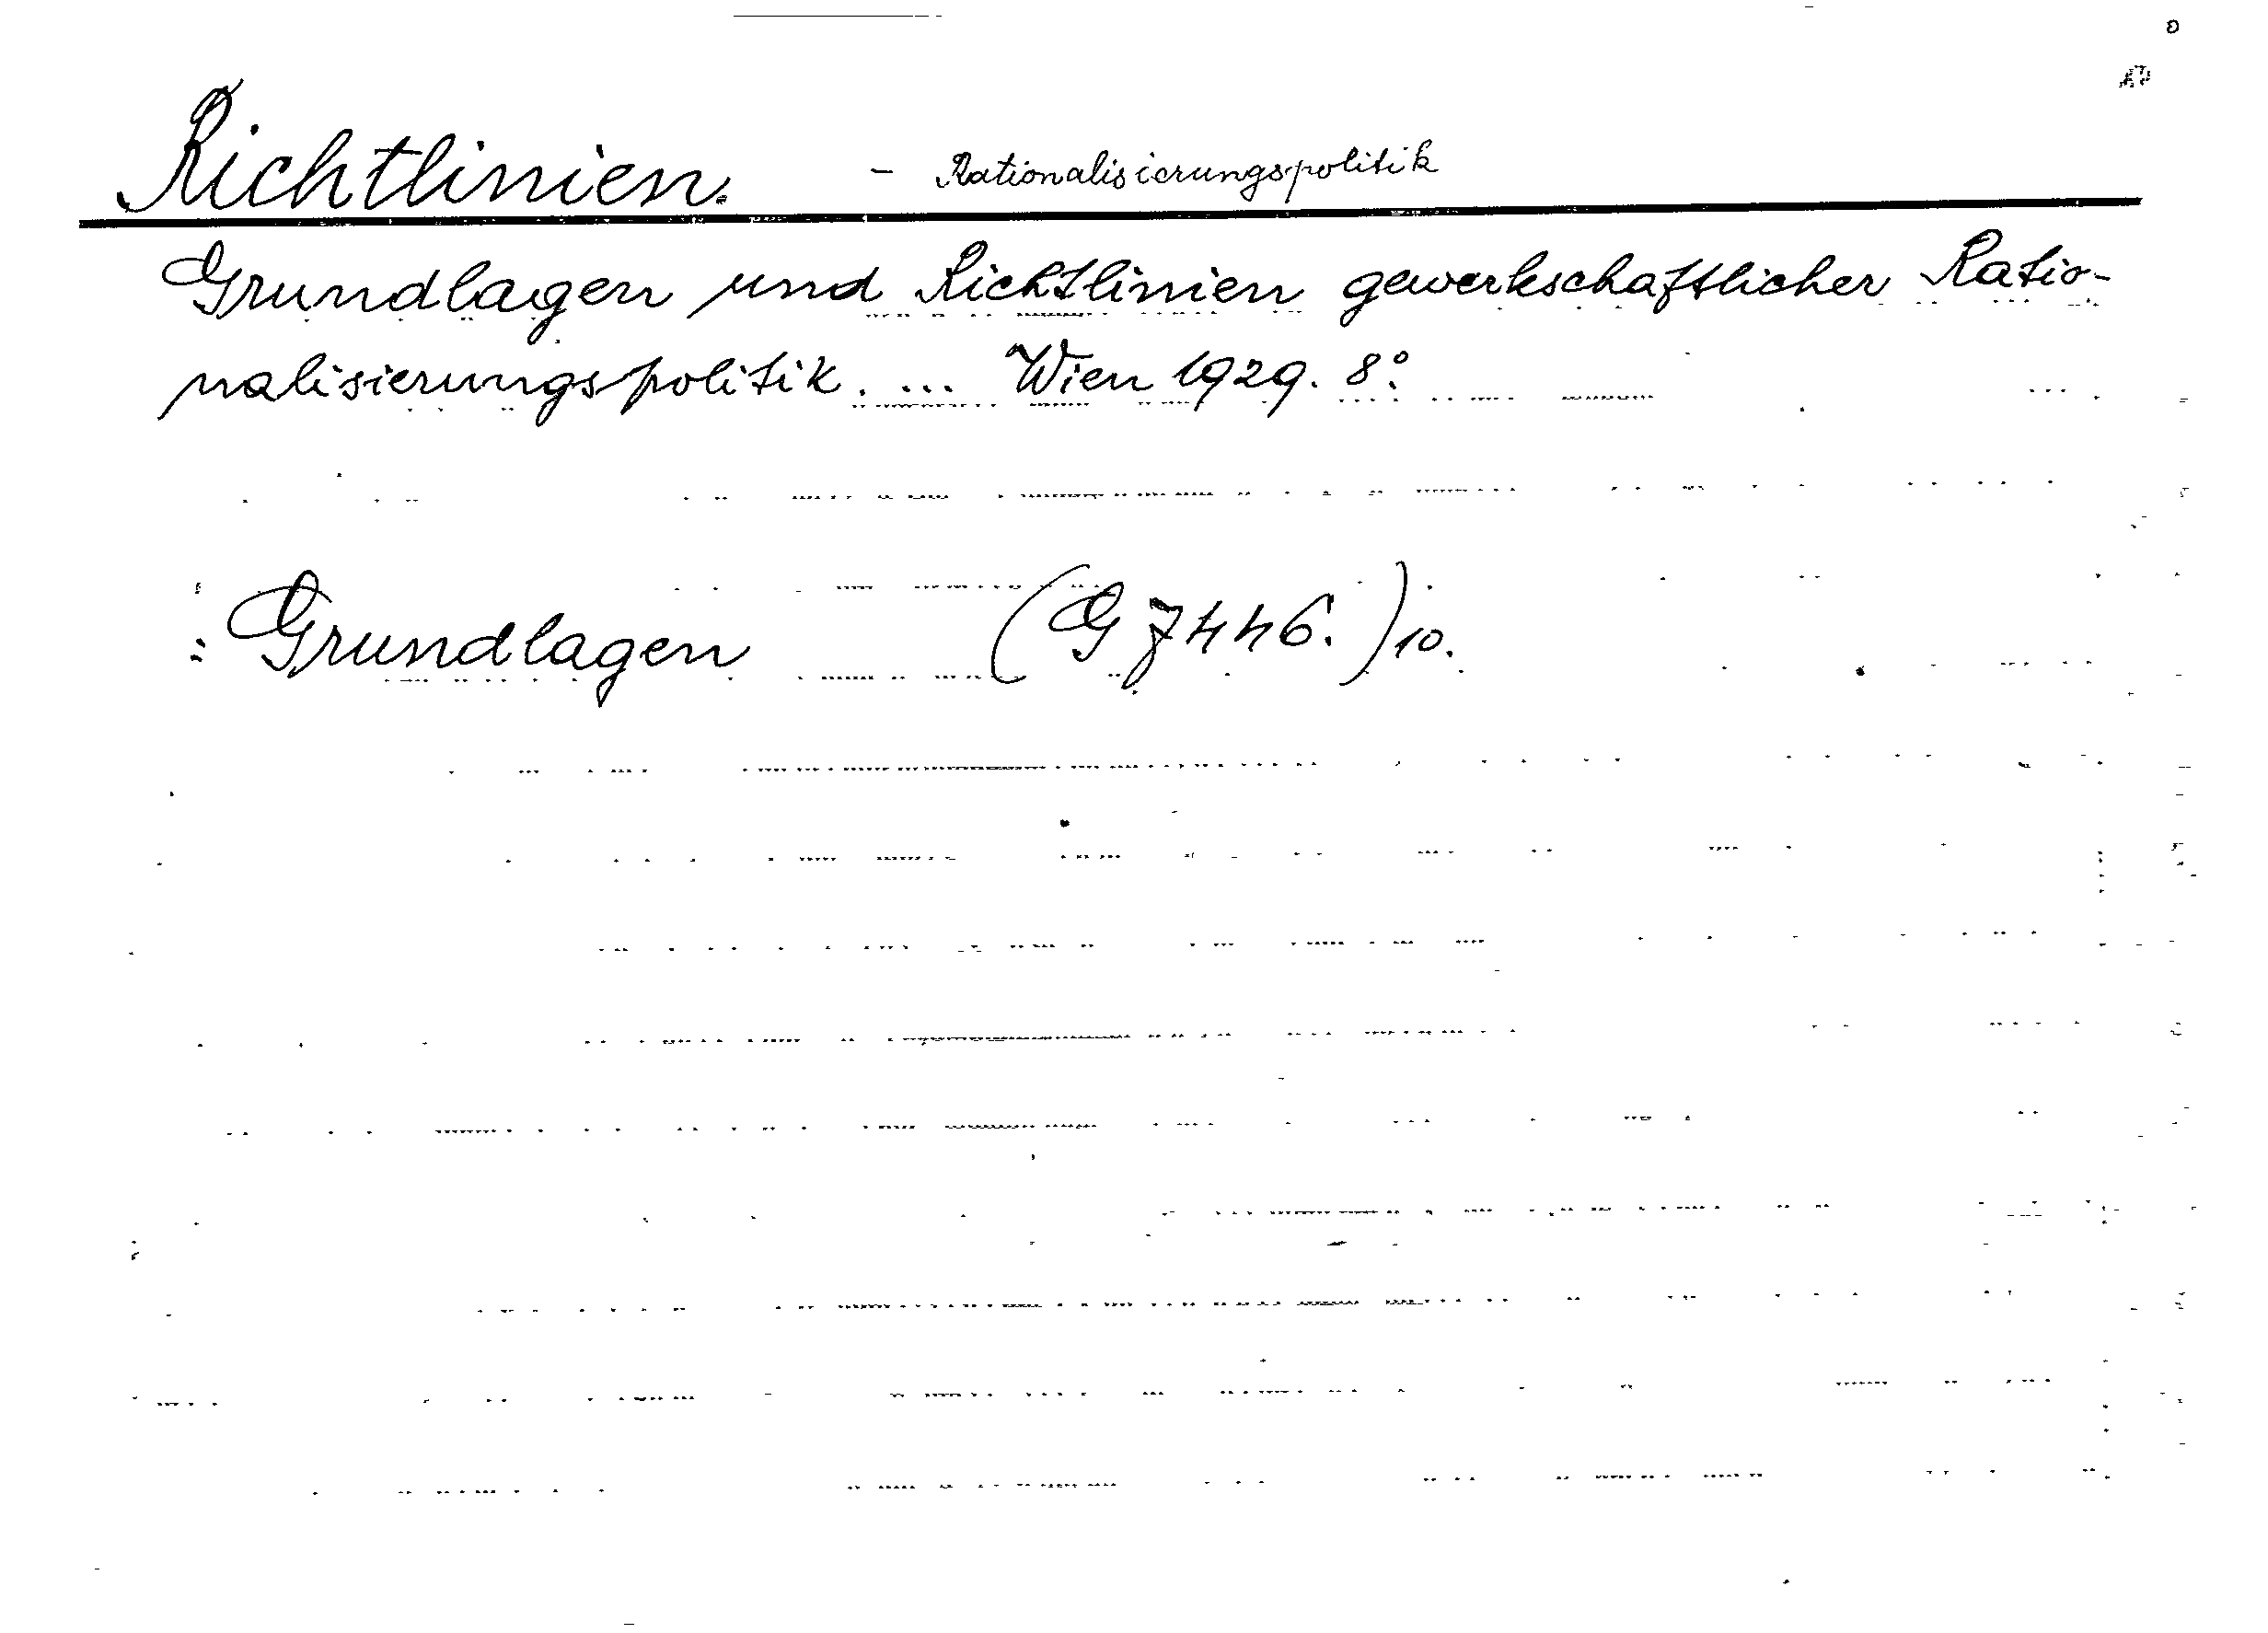 Richtlinien. - Rationalisierungspolitik
Grundlagen und Richtlinien gewerkschaftlicher Ratio-
nalisierungspolitik. ... Wien 1929. 8°.
: Grundlagen (G 7446.) 10.